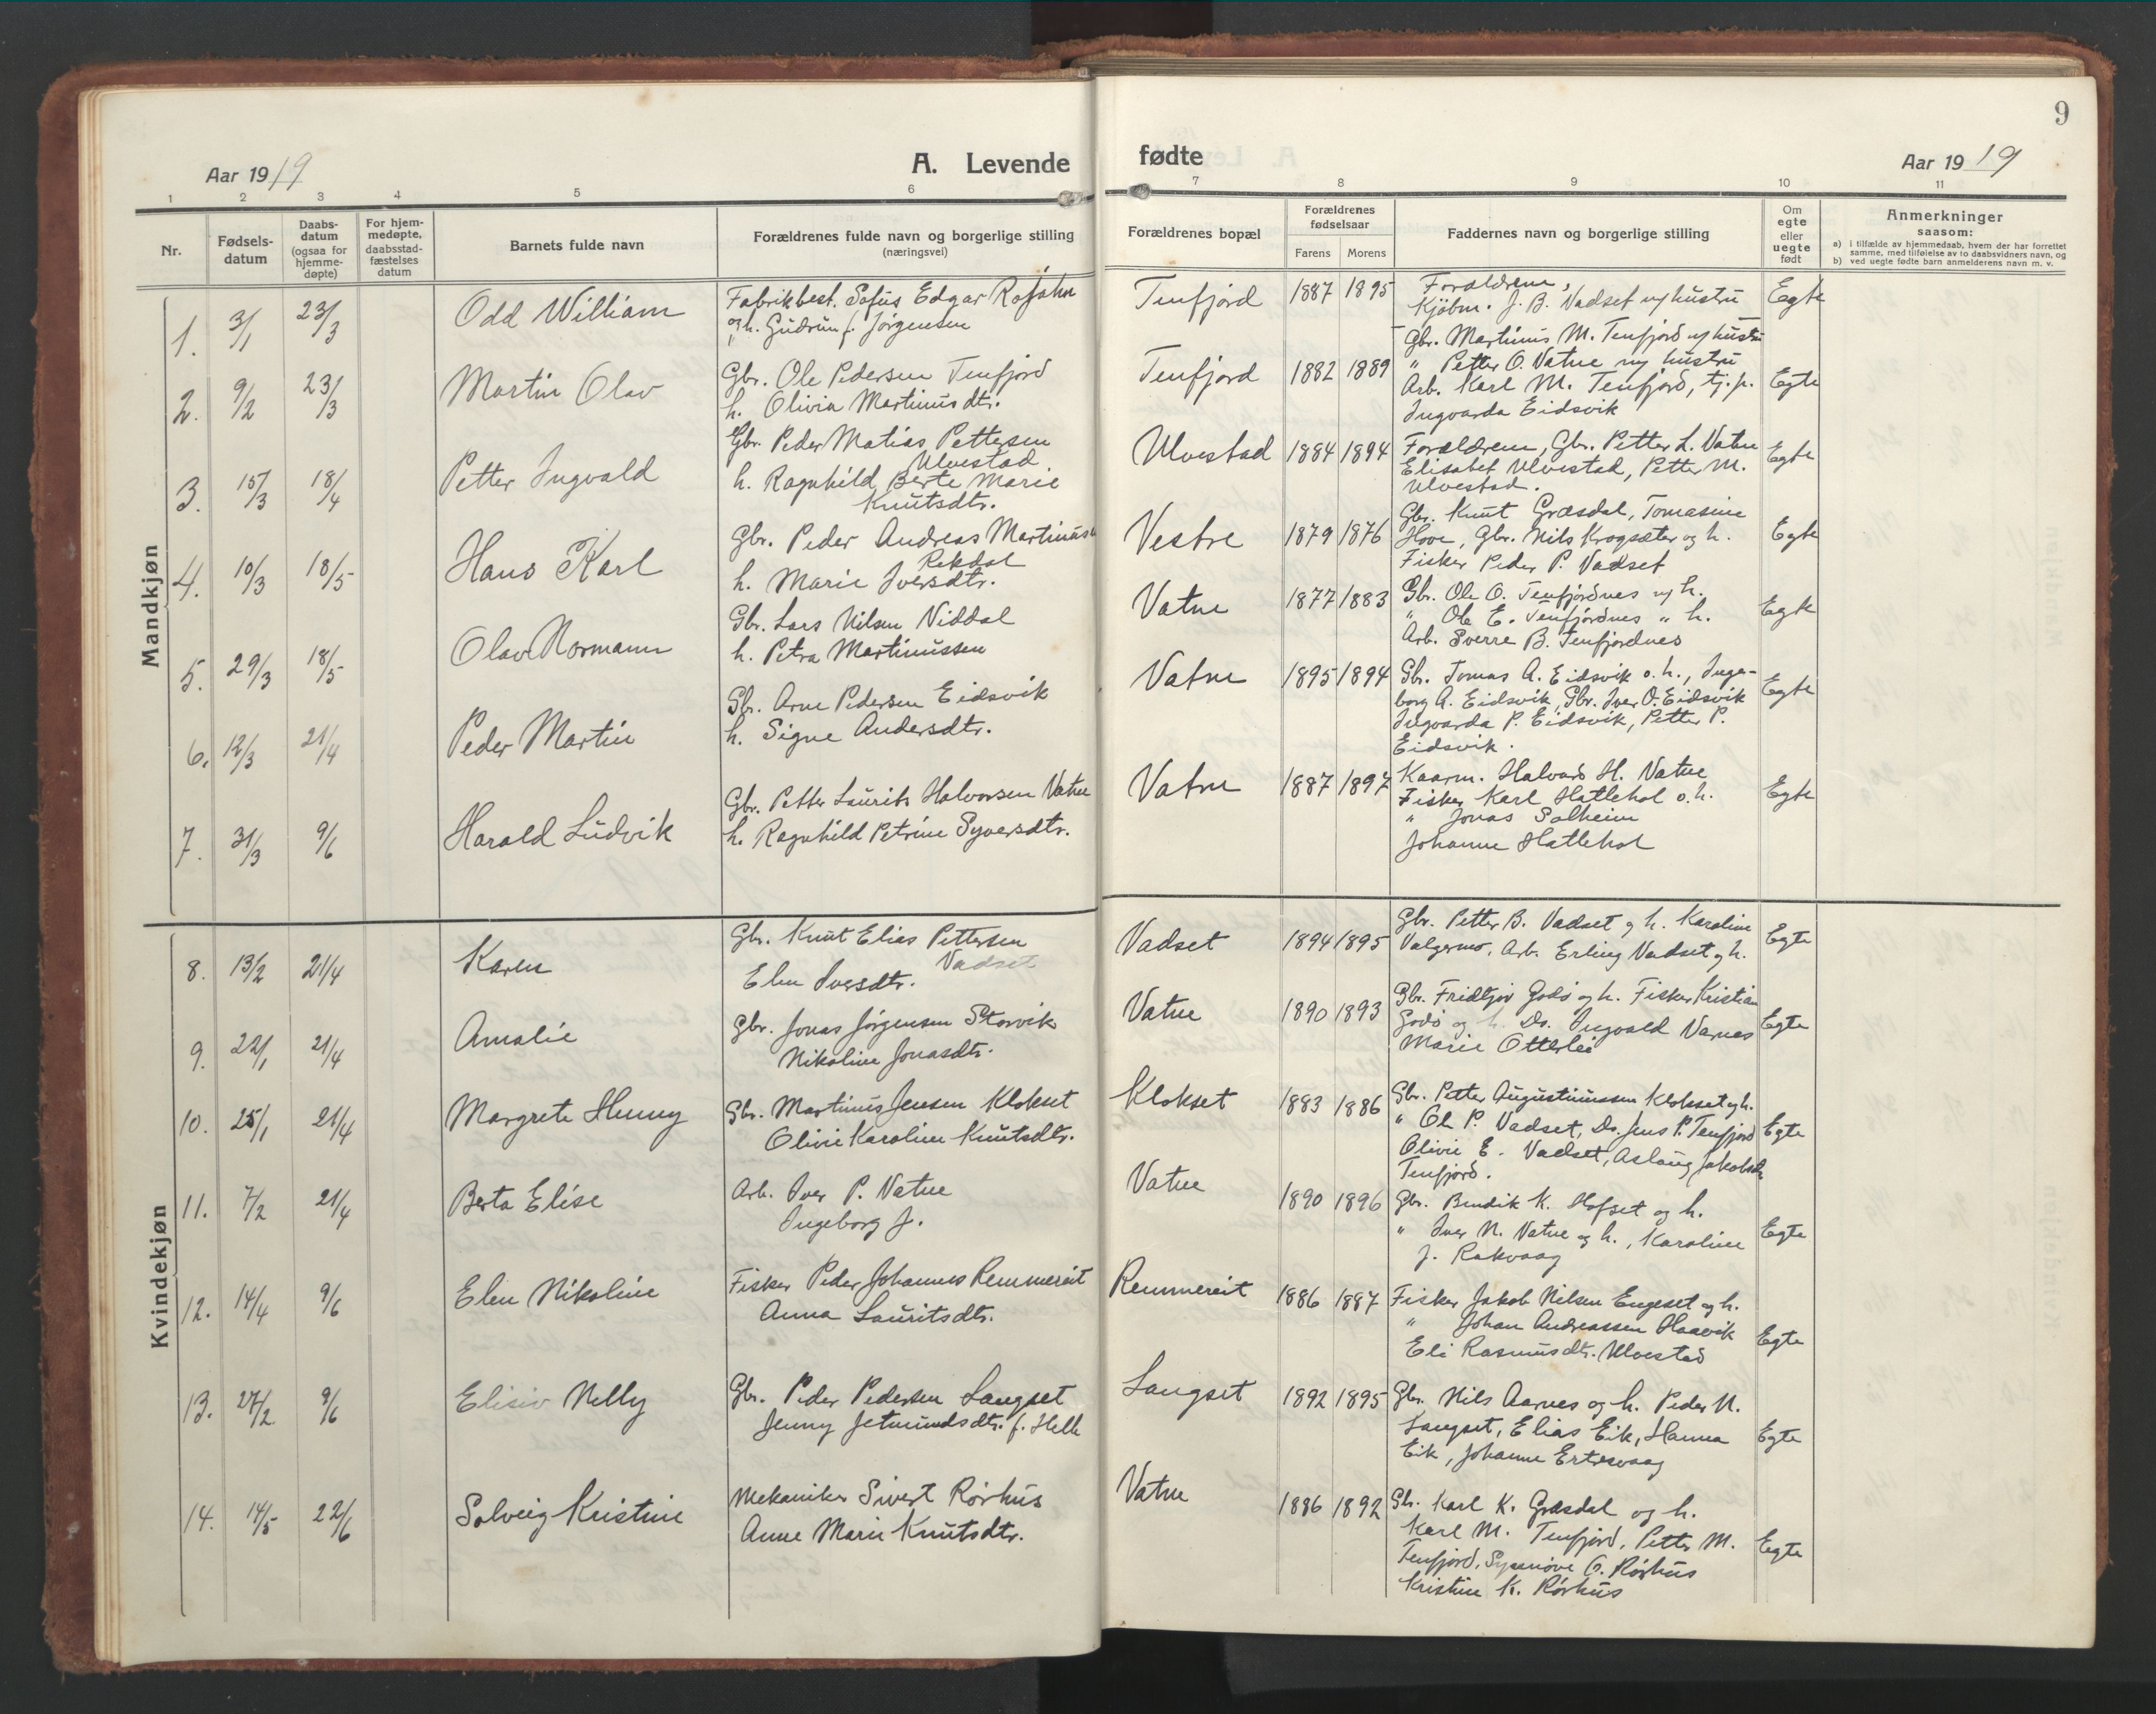 9
Aar 1919
A. Levende
fødte
Aar 1919
1 2 3 4 5 6 7 8 9 10 11
Nr.
Fødsels-
datum
Daabs-
datum
(ogsaa for
hjemme-
døpte)
For hjem-
medøpte,
daabsstad-
fæstelses
datum
Barnets fulde navn
Forældrenes fulde navn og borgerlige stilling
(næringsvei)
Forældrenes bopæl
Forældrenes
fødselsaar
Farens
Morens
Faddernes navn og borgerlige stilling
Om
egte
eller
uegte
født
Anmerkninger
saasom:
a) i tilfælde av hjemmedaab, hvem der har forrettet
samme, med tilføielse av to daabsvidners navn, og
b) ved uegte fødte barn anmelderens navn m. v.
Mandkjøn
1. 3/1 23/3 Odd William
Fabrikbest. Sofus Edgar
og h. Gudrun f. Jørgensen
Tenfjord 1887 1895
Forældrene,
Kjøbm. J. B. Vadset og hustru
Egte
2. 9/2 23/3 Martin Olav
Gbr. Ole Pedersen Tenfjord
h. Olivia Martinusdtr.
Tenfjord 1882 1889
Gbr. Martinus M. Tenfjord og hustru
" Petter O. Vatne og hustru
Arb. Karl M. Tenfjord, tj.p.
Ingvarda Eidsvik
Egte
3. 15/3 18/4 Petter Ingvald
Gbr. Peder Matias Pettersen
Ulvestad.
h. Ragnhild Berte Marie
Knutsdtr.
Ulvestad 1884 1894
Forældrene, Gbr. Petter L. Vatne
Elisabet Ulvestad, Petter M.
Ulvestad.
Egte
4. 10/3 18/5 Hans Karl
Gbr. Peder Andreas Martinus
Rekdal
h. Marie Iversdtr.
Vestre 1879 1876
Gbr. Knut Græsdal, Tomasine
Hove, Gbr. Nils Krogsæter og h.
Fisker Peder P. Vadset
Egte
5. 29/3 18/5 Olav Normann
Gbr. Lars Nilsen Niddal
h. Petra Martinussen
Vatne 1877 1883
Gbr. Ole O. Tenfjordnes og h.
" Ole E. Tenfjordnes " h.
Arb. Sverre B. Tenfjordnes
Egte
6. 12/3 21/4 Peder Martin
Gbr. Arne Pedersen Eidsvik
h. Signe Andersdtr.
Vatne 1895 1894
Gbr. Tomas A. Eidsvik o.h., Inge-
borg A. Eidsvik, Gbr. Iver O. Eidsvik
Ingvarda P. Eidsvik, Petter P.
Eidsvik.
Egte
7. 31/3 9/6 Harald Ludvik
Gbr. Petter Laurits Halvorsen Vatne
h. Ragnhild Petrine Syversdtr.
Vatne 1887 1897
Kaarm. Halvard H. Vatne
Fisker Karl Hatlehol o.h.
" Jonas Solheim
Johanne Hatlehol
Egte
Kvindekjøn
8. 13/2 21/4 Karen
Gbr. Knut Elias Pettersen
Vadset
Elen Iversdtr.
Vadset 1894 1895
Gbr. Petter B. Vadset og h. Karoline
Valgermo, Arb. Erling Vadset og h.
Egte
9. 22/1 21/4 Amalie
Gbr. Jonas Jørgensen Storvik
Nikoline Jonasdtr.
Vatne 1890 1893
Gbr. Fridtjov Godø og h. Fisker Kristian
Godø og h. Ds. Ingvald Varnes
Marie Otterlei
Egte
10. 25/1 21/4 Margrete Henny
Gbr. Martinus Jensen Klokset
Olivie Karoline Knutsdtr.
Klokset 1883 1886
Gbr. Petter Augustinussen Klokset og h.
" Ole P. Vadset, Ds. Jens P. Tenfjord
Olivie E. Vadset, Aslaug Jakobsdtr
Tenfjord.
Egte
11. 7/2 21/4 Berta Elise
Arb. Iver P. Vatne
Ingeborg J.
Vatne 1890 1896
Gbr. Bendik K. Hofset og h.
" Iver N. Vatne og h., Karoline
J. Rakvaag
Egte
12. 14/4 9/6 Elen Nikoline
Fisker Peder Johannes Remmereit
Anna Lauritsdtr.
Remmereit 1886 1887
Fisker Jakob Nilsen Engeset og h.
" Johan Andreassen Haavik
Eli Rasmusdtr. Ulvestad
Egte
13. 27/2 9/6 Elisiv Nelly
Gbr. Peder Pedersen Langset
Jenny Jetmundsdtr. f. Helle
Langset 1892 1895
Gbr. Nils Aarnes og h. Peder N.
Langset, Elias Eik, Hanna
Eik, Johanne Ertesvaag
Egte
14. 14/5 22/6 Solveig Kristine
Mekaniker Sivert Rørhus
Anne Marie Knutsdtr.
Vatne 1886 1892
Gbr. Karl K. Græsdal og h.
Karl M. Tenfjord, Petter M.
Tenfjord, Synnøve O. Rørhus
Kristine K. Rørhus
Egte